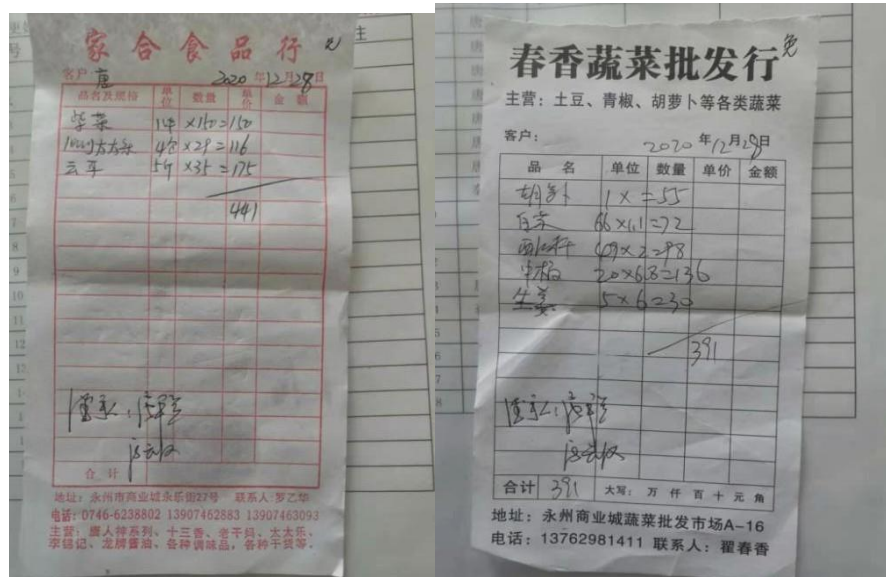 家合食品行
客户:唐 2020年12月28日
品名及规格 单位 数量 单价 金额
紫菜 1件 ×150=150
太太乐 4包 ×29=116
云耳 5斤 ×35=175
441
合计
地址:永州市商业城永乐街27号 联系人:罗乙华
电话:0746-6238802 13907462883 13907463093
主营:唐人神系列、十三香、老干妈、太太乐、
李锦记、龙牌酱油、各种调味品,各种干货等.
免
春香蔬菜批发行
主营:土豆、青椒、胡萝卜等各类蔬菜
客户:
2020年12月28日
品名 单位 数量 单价 金额
胡萝卜 1×=55
白菜 66×1.1=72
西红柿 49×2=98
20×6.8=136
生姜 5×6=30
391
合计 391 大写: 万 仟 百 十 元 角
地址:永州商业城蔬菜批发市场A-16
电话:13762981411 联系人:翟春香